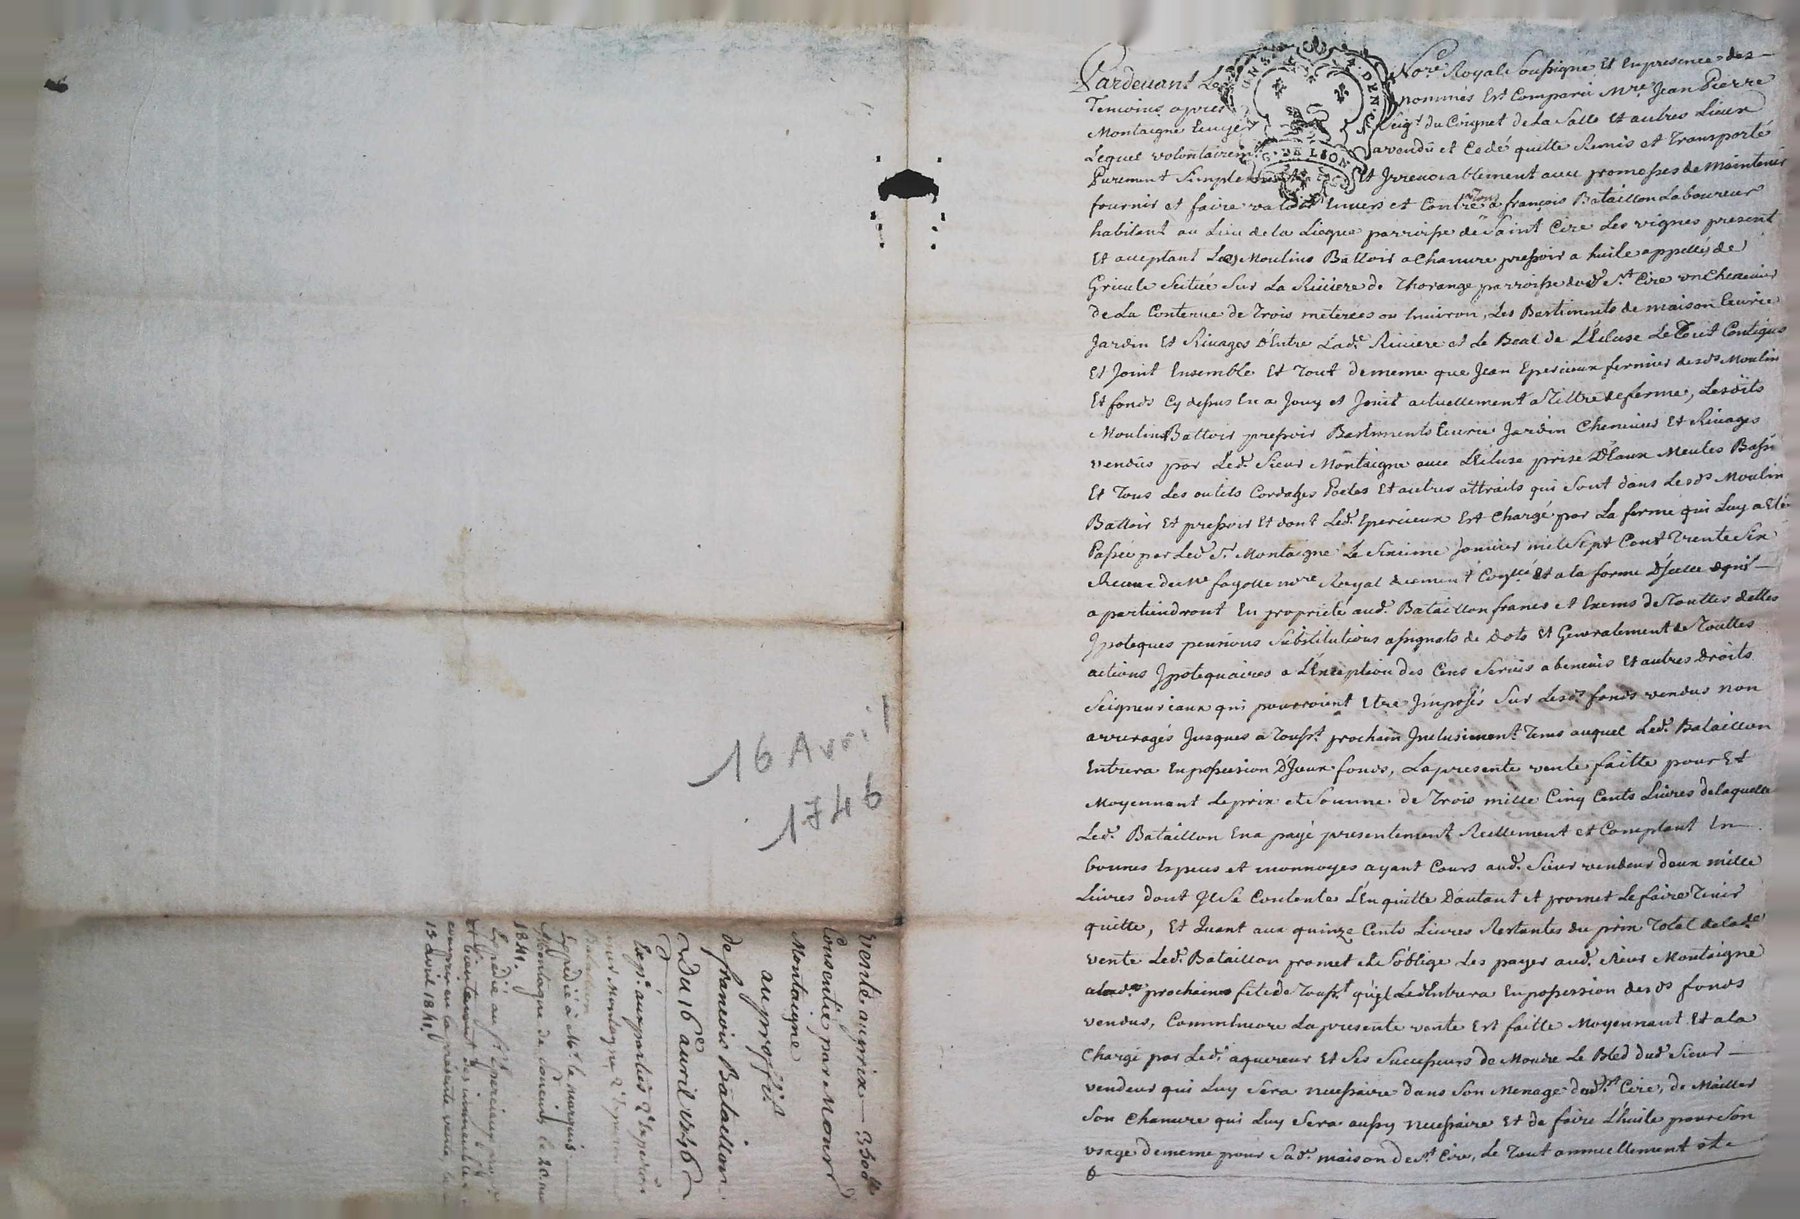 16 Avril
1746
vente au prix 3500ᵗᵗ
Consentie par Mons.r
Montaigne
au proffit
de francois Bataillon
Du 16e avril 1746
Exp.é aux parties
sieur Montaigne
Bataillon
Expédié à Mr. le marquis
Montagne de Poncins le 20 mai
1841.
Expédié au sr. Epercieux
des immeubles
compris en la présente vente le
15 avril 1841
GENS A. DEN. S
G. DE LION
Pardevant Le Nore. Royal soussigné Et Enpresence des
Temoins apres nommés Est Comparu Mre. Jean Pierre
Montaigne Ecuyer Seigr. du Poignet de La Salle Et autres Lieux
Lequel volontairemt. a vendû et Cedé quitte Remis et Transporté
Purement Simplement Et Irrevocablement avec promesses de Maintenir
fournir et faire valoir Envers et Contre Tous a françois Bataillon Laboureur
habitant au Lieu de la Liegue parroisse de Saint Cire Les vignes present
Et acceptant Les Moulins Battoir a Chanvre pressoir a huile appellés de
Gricule Scitüé Sur La Riviere de Thorange parroisse dud. St. Cire un Chenevier
de La Contenue de Trois meterées ou Environ, Les Bastiments de maison Ecurie
Jardin Et Rivages d'Entre Lade. Riviere et Le Beal de L'Ecluse Le Tout Contigus
Et Joint Ensemble Et Tout dememe que Jean Epercieux fermier desds. Moulin
Et fonds Cy dessus En a Jouy et Jouit actuellement a Tiltre de ferme, Lesdits
Moulins Battoir pressoir Bastiments Ecurie Jardin Chenevier Et Rivages
vendûs par Led. Sieur Montaigne avec L'Ecluse prise D'Eaux Meules Bassin
Et Tous Les outils Cordages Poeles Et autres attraits qui Sont dans Lesds. Moulin
Battoir Et pressoir Et dont Led. Epercieux Est Chargé par La ferme qui Luy a Eté
Passée par Led. Sr. Montaigne Le Sixieme Janvier mil Sept Cent Trente Six
Recue de Me fayolle nore. Royal duement Conllé. Et a la forme D'Jcelle
apartiendront En proprieté aud. Bataillon francs et Exems de Touttes dettes
Jpoteques pensions Substitutions assignats de dots Et Generalement de Touttes
actions Jpotequaires a L'Exception des Cens Servis abenevis Et autres droits
Seigneuriaux qui pourroient Etre Jmposés Sur Lesds. fonds vendus non
arreragés Jusques a Tousst. prochain Jnclusivement. Tems auquel Led. Bataillon
Entrera En possession D'Jceux fonds, La presente vente faitte pour Et
Moyennant Le prix et Somme de Trois mille Cinq Cents Livres de laquelle
Led. Bataillon En a payé presentement Reellement et Comptant En
bonnes Especes et monnoyes ayant Cours aud. Sieur vendeur deux mille
Livres dont Jl Se Contente L'En quitte D'autant et promet Le faire Tenir
quitte, Et Quant aux quinze Cents Livres Restantes du prix Total de lade.
vente Led. Bataillon promet et S'oblige Les payer aud. Sieur Montaigne
prochaine fete de Tousst. qu'Jl Led. Entrera En possession desds. fonds
vendus, Comm'Encore La presente vente Est faitte Moyennant Et a la
Charge par Led. aquereur Et Ses Successeurs de Moudre Le Bled dud. Sieur
vendeur qui Luy Sera necessaire dans Son Menage dud. St. Cire, de Mailler
Son Chanvre qui Luy Sera aussy necessaire Et de faire L'huile pour Son
usage dememe pour Sad. maison de St. Cire, Le Tout annuellement Et